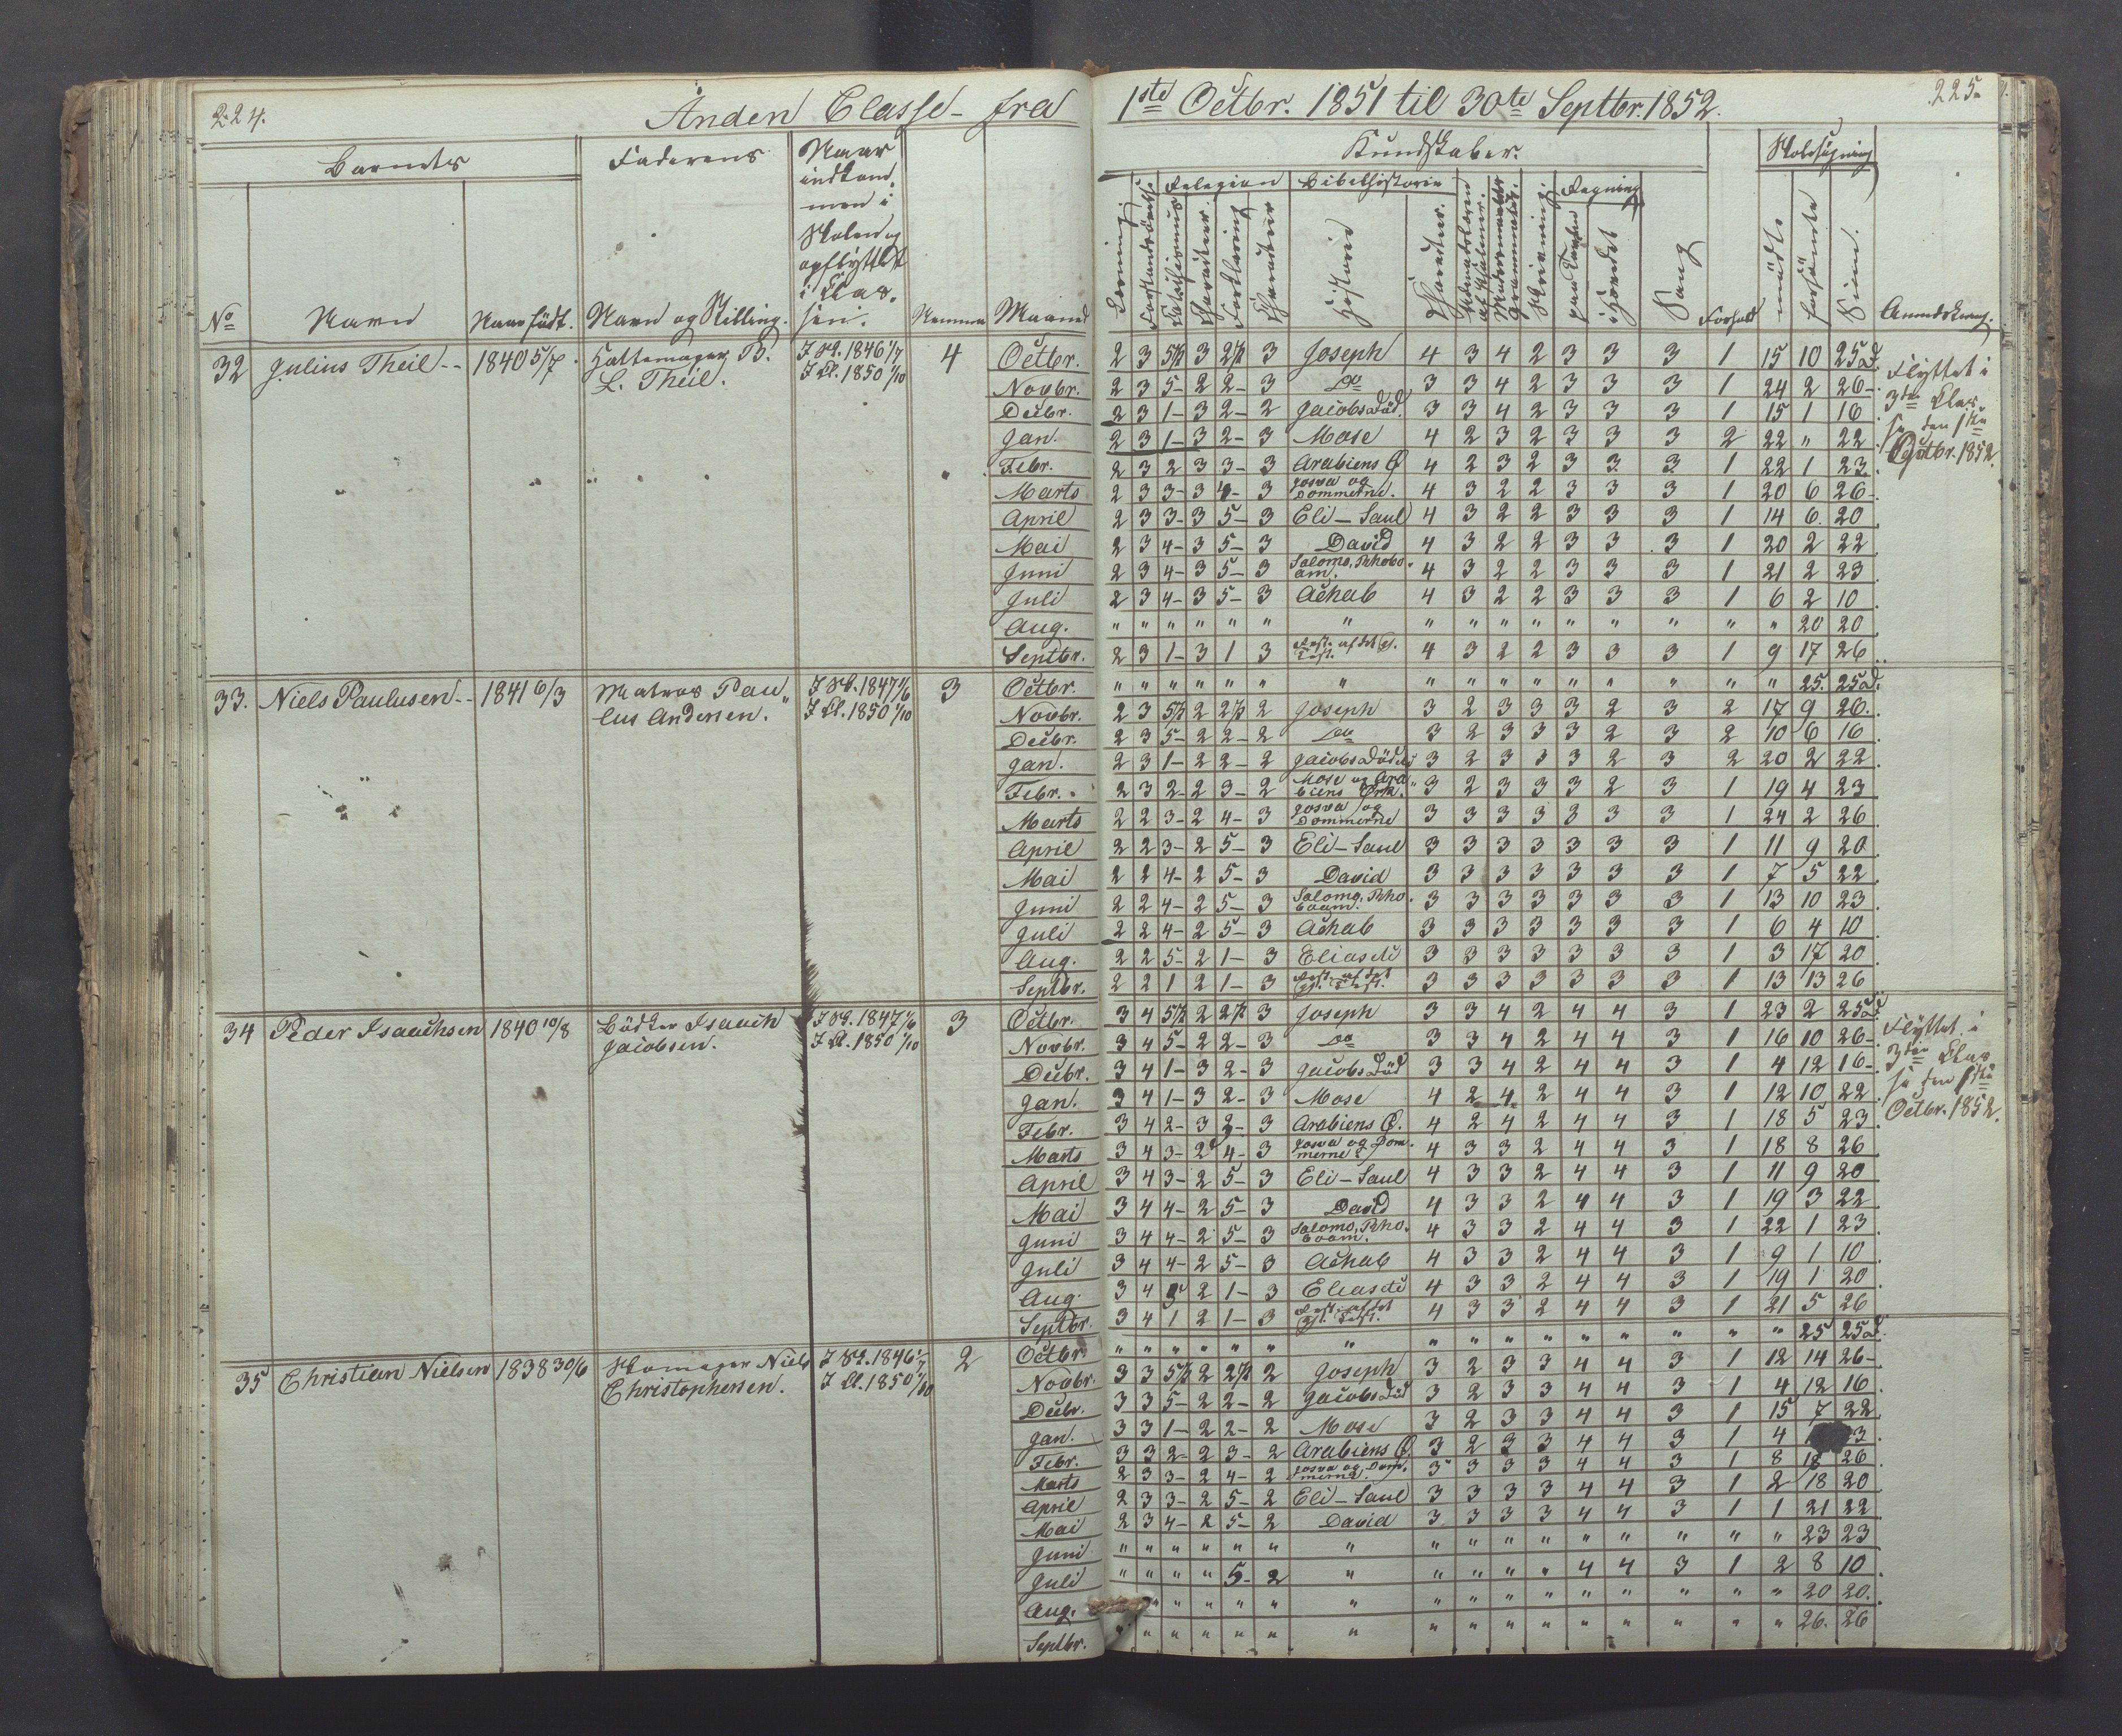 224.
Anden Classe - fra
1ste Octbr. 1851 til 30te Septbr. 1852.
225
Barnets
Faderens
Naar indkom-
men i
Skolen og
opflyttet
i Clas-
sen.
Kundskaber.
Skolesøgning
Religion
Bibelhistorie
Regning
No
Navn
Naar født.
Navn og Stilling.
Nummer
Maaned
Læsning
Historie
Charakter.
Skrivning.
Sang
Forhold
mødte
forsømte
Sum.
Anmærkning.
32 Julius Theil -- 1840 5/7 Hattemager B. I Sk. 1846 1/7 4 Octbr. 2 3 5 1/2 3 2 1/2 3 Joseph 4 3 4 2 3 3 3 1 15 10 25 d. Flyttet i
L. Theil. I Cl. 1850 1/10 Novbr. 2 3 5- 2 2- 3 Do 3 3 4 2 3 3 3 1 24 2 26 - 3die Clas-
Decbr. 2 3 1- 3 2- 2 Jacobs Død. 3 3 4 2 3 3 3 1 15 1 16 se den 1ste
Jan. 2 3 1- 3 2- 3 Mose 4 2 3 2 3 3 3 2 22 " 22 Octbr. 1852.
Febr. 2 3 2 3 3- 3 Arabiens Ø 4 2 3 2 3 3 3 1 22 1 23.
Marts 2 3 3- 3 4- 3 Josva og Dommerne. 4 3 2 2 3 3 3 1 20 6 26
April 2 3 3- 3 5- 3 Eli - Saul 4 3 2 2 3 3 3 1 14 6. 20
Mai 2 3 4- 3 5- 3 David 4 3 2 2 3 3 3 1 20 2 22
Juni 2 3 4- 3 5- 3 Salomo, Rhobo-am. 4 3 2 2 3 3 3 1 21 2 23
Juli 2 3 4- 3 5- 3 Achab 4 3 2 2 3 3 3 1 6 2 10
Aug. " " " " " " " " " " " " " " " " 20 20
Septbr. 2 3 1- 3 1 3 Rest. af det gl. Test. 4 3 2 2 3 3 3 1 9 17 26
33. Niels Paulusen -- 1841 6/3 Matros Pau- I Sk. 1847 1/6 3 Octbr. " " " " " " " " " " " " " " " " 25. 25 d.
lus Andersen. I Cl. 1850 1/10 Novbr. 2 3 5 1/2 2 2 1/2 2 Joseph 3 2 3 3 3 2 3 2 17 9 26.
Decbr. 2 3 5- 2 2- 2 Do 3 2 3 3 3 2 3 2 10 6 16
Jan. 2 3 1- 2 2- 2 Jacobs Død 3 2 3 3 3 2 3 2 20 2 22
Febr. 2 3 2- 2 3- 2 Mose og Ara-biens Ørk. 3 2 3 3 3 2 3 1 19 4 23
Marts 2 2 3- 2 4- 3 Josva og Dommerne 3 3 3 3 3 3 3 1 24 2 26
April 2 2 3- 2 5- 3 Eli - Saul 3 3 3 3 3 3 3 1 11 9 20
Mai 2 2 4- 2 5- 3 David 3 3 3 3 3 3 3 1 7 5 22
Juni 2 2 4- 2 5- 3 Salomo, Rho-boam. 3 3 3 3 3 3 3 1 13 10 23
Juli 2 2 4- 2 5- 3 Achab 3 3 3 3 3 3 3 1 6 4 10
Aug. 2 2 5- 2 1- 3 Elias &c 3 3 3 3 3 3 3 1 3 17 20
Septbr. 2 2 1 2 1- 3 Rest. af det gl. Test. 3 3 3 3 3 3 3 1 13 13 26
34 Peder Isaachsen 1840 10/8 Bødker Isaach I Sk. 1847 1/6 3 Octbr. 3 4 5 1/2 2 2 1/2 3 Joseph 3 3 4 2 4 4 3 1 23 2 25 d. Flyttet i
Jacobsen. I Cl. 1850 1/10 Novbr. 3 4 5- 2 2- 3 Do 3 3 4 2 4 4 3 1 16 10 26 - 3die Clas-
Decbr. 3 4 1- 3 2- 3 Jacobs Død 3 3 4 2 4 4 3 1 4 12 16 - se den 1ste
Jan. 3 4 1- 3 2- 3 Mose 4 2 4 2 4 4 3 1 12 10 22 Octbr. 1852.
Febr. 3 4 2- 3 3- 3 Arabiens Ø. 4 2 4 2 4 4 3 1 18 5 23
Marts 3 4 3- 2 4- 3 Josva og Dom-merne 4 3 3 2 4 4 3 1 18 8 26
April 3 4 3- 2 5- 3 Eli - Saul 4 3 3 2 4 4 3 1 11 9 20
Mai 3 4 4- 2 5- 3 David 4 3 3 2 4 4 3 1 19 3 22
Juni 3 4 4- 2 5- 3 Salomo, Rho-boam. 4 3 3 2 4 4 3 1 22 1 23
Juli 3 4 4- 2 5- 3 Achab 4 3 3 2 4 4 3 1 9 1 10
Aug. 3 4 5 2 1- 3 Elias &c 4 3 3 2 4 4 3 1 19 1 20
Septbr. 3 4 1 2 1- 3 Rest. af det gl. Test. 4 3 3 2 4 4 3 1 21 5 26
35 Christian Nielsen 1838 30/6 Skomager Niels I Sk. 1846 1/7 2 Octbr. " " " " " " " " " " " " " " " " 25 25 d.
Christophersen. I Cl. 1850 1/10 Novbr. 3 3 5 1/2 2 2 1/2 2 Joseph 3 2 3 3 4 4 3 1 12 14 26 -
Decbr. 3 3 5- 2 2- 2 Jacobs Død 3 2 3 3 4 4 3 1 4 12 16
Jan. 3 3 1- 2 2- 2 Mose 3 2 3 3 4 4 3 1 15 7 22
Febr. 3 3 2- 2 3- 2 Arabiens Ø. 3 2 3 3 4 4 3 1 4 3
Marts 2 3 3- 2 4- 2 Josva og Dom-merne. 3 3 3 3 4 4 3 1 8 18 26
April 2 3 3- 2 5- 2 Eli - Saul 3 3 3 3 4 4 3 1 2 18 20
Mai 2 3 4- 2 5- 2 David 3 3 3 3 4 4 3 1 1 21 22
Juni " " " " " " " " " " " " " " " " 23 23
Juli " " " " 5- 2 " " " " " 4 4 3 1 2 8 10
Aug. " " " " " " " " " " " " " " " 20 20.
Septbr. " " " " " " " " " " " " " " " " 26. 26